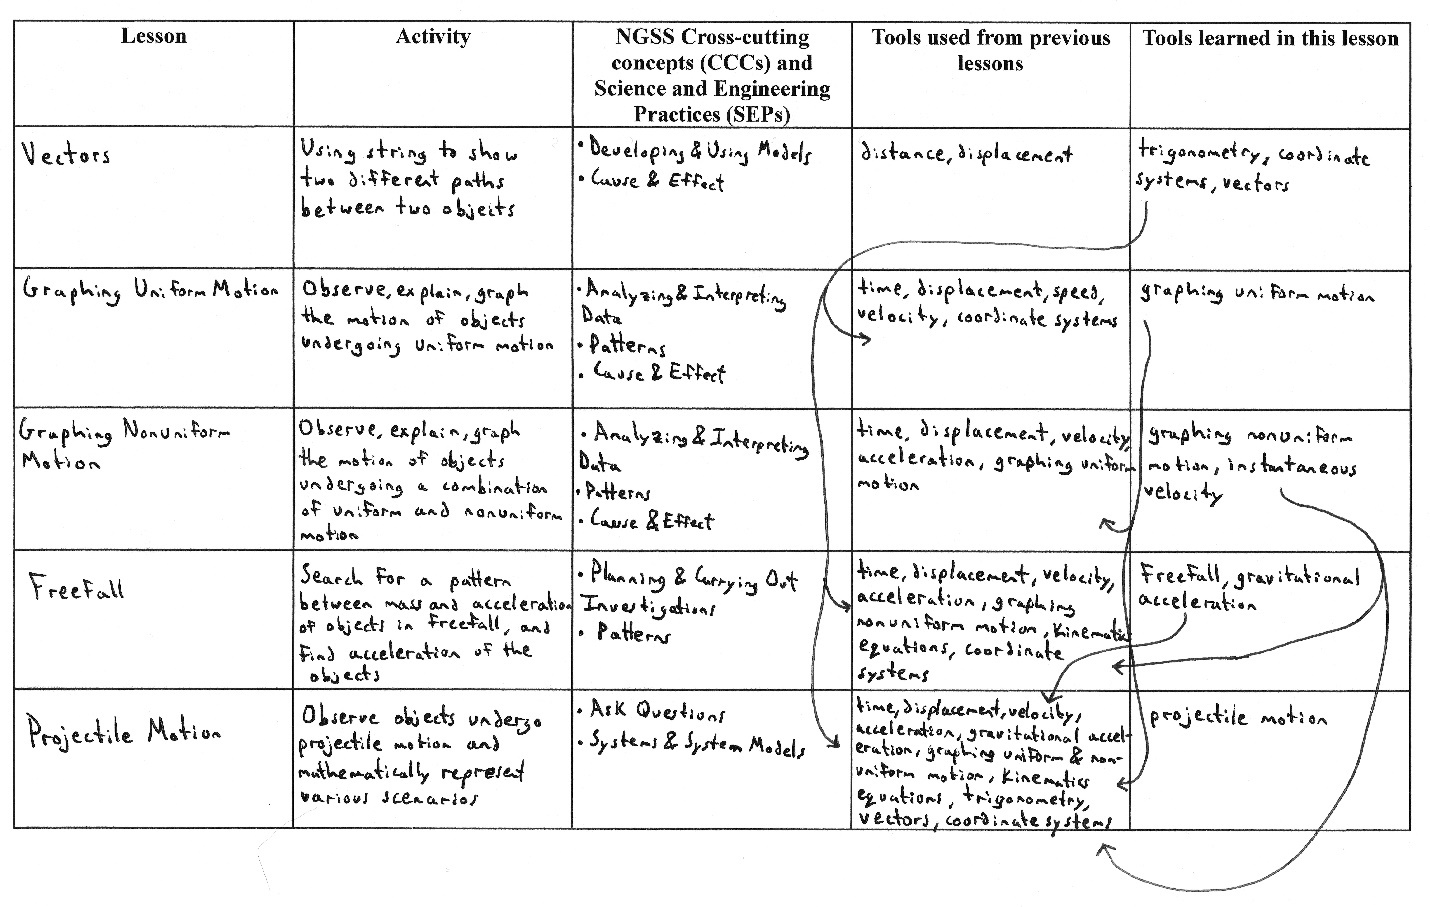 Lesson
Activity
NGSS Cross-cutting
concepts (CCCs) and
Science and Engineering
Practices (SEPs)
Tools used from previous
lessons
Tools learned in this lesson
Vectors
Using string to show
two different paths
between two objects
• Developing & Using Models
• Cause & Effect
distance, displacement
trigonometry, coordinate
systems, vectors
Graphing Uniform Motion
Observe, explain, graph
the motion of objects
undergoing uniform motion
• Analyzing & Interpreting
Data
• Patterns
• Cause & Effect
time, displacement, speed,
velocity, coordinate systems
graphing uniform motion
Graphing Nonuniform
Motion
Observe, explain, graph
the motion of objects
undergoing a combination
of uniform and nonuniform
motion
• Analyzing & Interpreting
Data
• Patterns
• Cause & Effect
time, displacement, velocity,
acceleration, graphing uniform
motion
graphing nonuniform
motion, instantaneous
velocity
Freefall
Search for a pattern
between mass and acceleration
of objects in freefall, and
find acceleration of the
objects
• Planning & Carrying Out
Investigations
• Patterns
time, displacement, velocity,
acceleration, graphing
nonuniform motion, kinematic
equations, coordinate
systems
freefall, gravitational
acceleration
Projectile Motion
Observe objects undergo
projectile motion and
mathematically represent
various scenarios
• Ask Questions
• Systems & System Models
time, displacement, velocity,
acceleration, gravitational accel-
eration, graphing uniform & non-
uniform motion, kinematics
equations, trigonometry,
vectors, coordinate systems
projectile motion